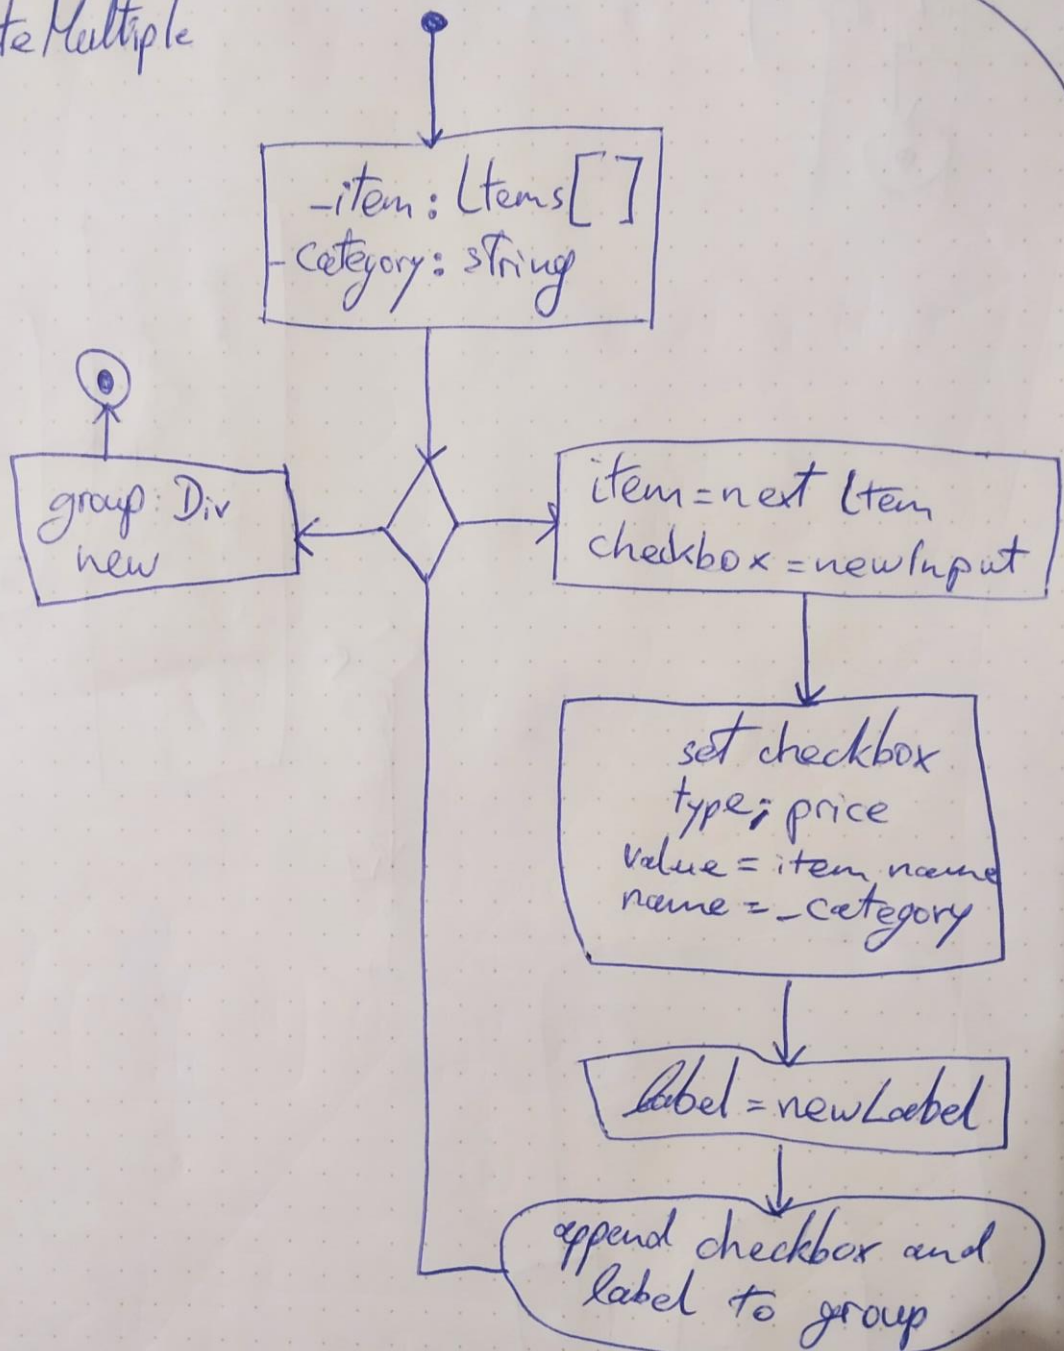 teMultiple
_item: Items[]
-category: string
group: Div
new
item=next Item
checkbox=newInput
set checkbox
type; price
value = item name
name = _category
label = newLabel
append checkbox and
label to group